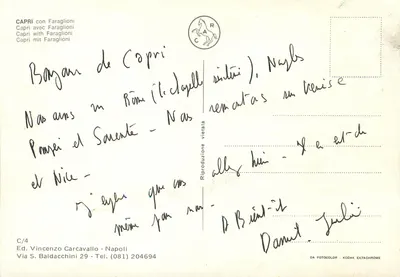 CAPRI con Faraglioni
Capri avec Faraglioni
Capri with Faraglioni
Capri mit Faraglioni
CARA
Bonjour de Capri
Nous avons vu Rome (la chapelle sixtine), Naples
Pompei et Sorrente - Nous remontons sur Venise
et Nice - J'espère que vous allez bien - Il en est de
même pour nous -
A Bientôt
Julie
Riproduzione vietata
C/4
Ed. Vincenzo Carcavallo - Napoli
Via S. Baldacchini 29 - Tel. (081) 204694